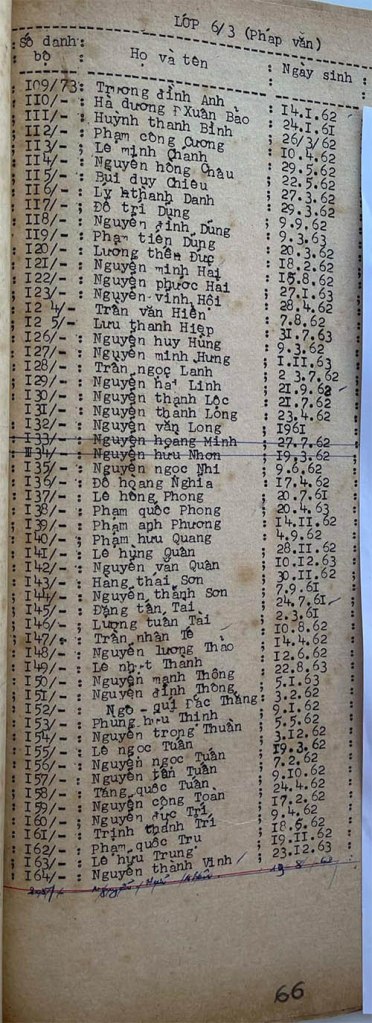 LỚP 6/3 (Pháp văn)
Số danh bộ : Họ và tên : Ngày sinh :
I09/73: Trương đình Anh : I4.I.62
II0/-: Hà dương Xuân Bảo : 24.I.6I
III/-: Huỳnh thanh Bình : 26/3/62
II2/-: Phạm công Cương : I0.4.62
II3/-: Lê minh Chanh : 29.5.62
II4/-: Nguyễn hồng Châu : 22.5.62
II5/-: Bùi duy Chiêu : 27.3.62
II6/-: Lý thanh Danh : 29.3.62
II7/-: Đỗ trí Dũng : 9.9.62
II8/-: Nguyễn đình Dũng : 9.3.63
II9/-: Phạm tiến Dũng : 20.3.62
I20/-: Lương thế Đực : I8.2.62
I2I/-: Nguyễn minh Hải : I5.8.62
I22/-: Nguyễn phước Hải : 27.I.63
I23/-: Nguyễn vinh Hội : 28.4.62
I2 4/-: Trần văn Hiền : 7.8.62
I2 5/-: Lưu thanh Hiệp : 3I.7.63
I26/-: Nguyễn huy Hùng : 9.3.62
I27/-: Nguyễn minh Hưng : I.II.63
I28/-: Trần ngọc Lanh : 2 3.7.62
I29/-: Nguyễn hải Linh : 2I.9.62
I30/-: Nguyễn thành Lộc : 2I.7.62
I3I/-: Nguyễn thành Long : 23.4.62
I32/-: Nguyễn văn Long : I96I
I33/-: Nguyễn hoàng Minh : 27.7.62
I34/-: Nguyễn hưu Nhơn : I9.3.62
I35/-: Nguyễn ngọc Nhi : 9.6.62
I36/-: Đỗ hoàng Nghĩa : I7.4.62
I37/-: Lê hồng Phong : 20.7.6I
I38/-: Phạm quốc Phong : 20.4.63
I39/-: Phạm anh Phương : I4.II.62
I40/-: Phạm hưu Quang : 4.9.62
I4I/-: Lê hùng Quân : 28.II.62
I42/-: Nguyễn văn Quân : I0.I2.63
I43/-: Hang thái Sơn : 30.II.62
I44/-: Nguyễn thành Sơn : 7.9.6I
I45/-: Đặng tấn Tài : 24.7.6I
I46/-: Lương tuấn Tài : 2.3.6I
I47/-: Trần nhân Tê : I0.8.62
I48/-: Nguyễn lương Thảo : I4.4.62
I49/-: Lê nhựt Thanh : I2.6.62
I50/-: Nguyễn mạnh Thông : 22.8.63
I5I/-: Nguyễn đình Thông : 5.I.63
I52/-: Ngô - quí Đắc Thắng : 3.2.62
I53/-: Phùng hưu Thinh : 9.I.62
I54/-: Nguyễn trọng Thuận : 5.5.62
I55/-: Lê ngọc Tuấn : 3.I2.62
I56/-: Nguyễn ngọc Tuấn : I9.3.62
I57/-: Nguyễn tấn Tuấn : 7.2.62
I58/-: Tăng quốc Tuấn : 9.I0.62
I59/-: Nguyễn công Toàn : 24.4.62
I60/-: Nguyễn đực Trí : I7.2.62
I6I/-: Trịnh thành Trí : 9.4.62
I62/-: Phạm quốc Tru : I8.5.62
I63/-: Lê hữu Trung : I9.II.62
I64/-: Nguyễn thành Vinh : 23.I2.63
66